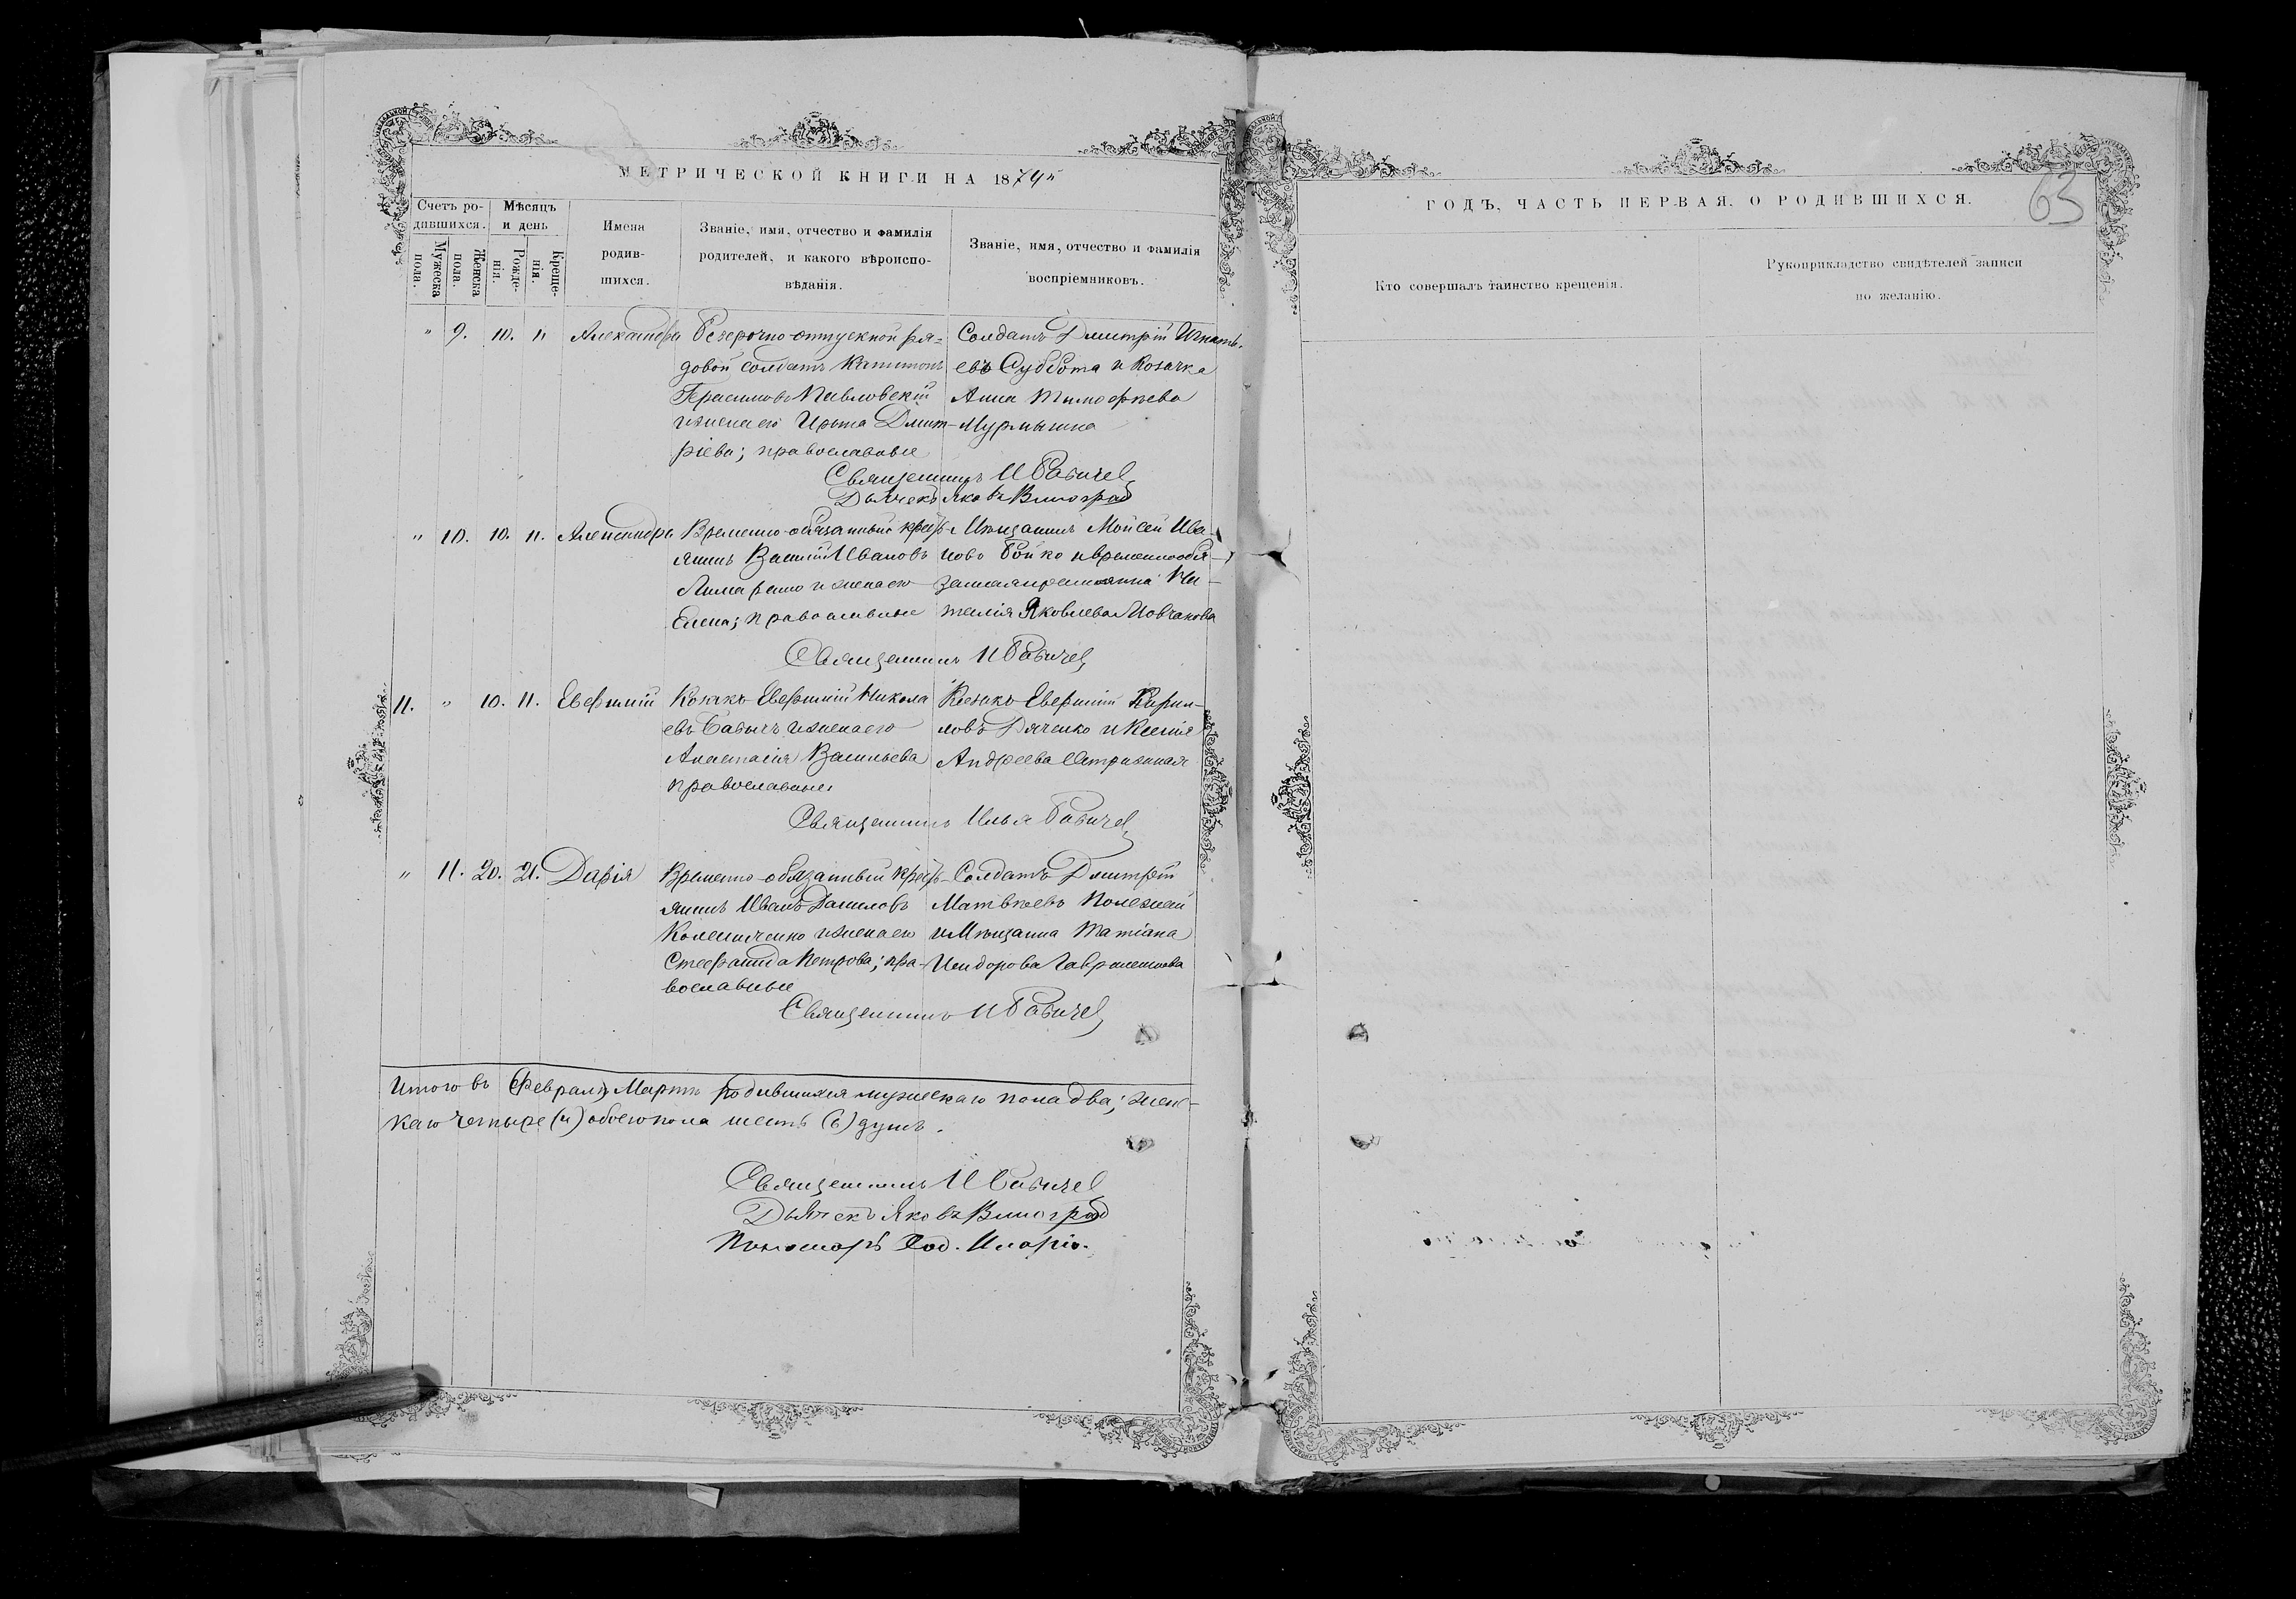 МЕТРИЧЕСКОЙ КНИГИ НА 1874й
Счетъ родившихся.
Мѣсяцъ и день
Мужеска пола.
Женска пола.
Рожденія.
Крещенія.
Имена родившихся.
Званіе, имя, отчество и фамилія родителей, и какого вѣроисповѣданія.
Званіе, имя, отчество и фамилія воспріемниковъ.
" 9. 10. 11. Александра
Безсрочно-отпускной ря-
довой солдатъ Капитонъ
Герасимовъ Павловскій
и жена его Ирина Димит-
ріева; православные
Солдатъ Дмитрій Игнать-
евъ Суббота и Козачка
Анна Тимофѣева
Мурмыкина
Священникъ И Бабичев
Дьячекъ Яковъ Виноград
" 10. 10. 11. Александра
Временно-обязанный кресть-
янинъ Василій Ивановъ
и жена его
Елена; православные
Мѣщанинъ Мойсей Ива-
новъ Бойко и временнообя-
занная крестьянка На-
талія Яковлева Мовчанова
Священникъ И Бабичев
11. " 10. 11. Евфимій
Козакъ Евфимій Никола
евъ Бабичъ и жена его
Анастасія Васильева
православные
Козакъ Евфимій Кирил-
ловъ Дяченко и Ксенія
Андреева
Священникъ Илья Бабичев
" 11. 20. 21. Дарія
Временно-обязанный кресть-
янинъ Иванъ Даниловъ
Колесниченко и жена его
Стефанида Петрова; пра-
вославные
Солдатъ Дмитрій
Матвѣевъ Полежай
и Мѣщанка Татіана
Исидорова
Священникъ И Бабичев
Итого въ Февралѣ, Мартѣ родившихся мужескаго пола два; женс-
каго четыре (4) обоего пола шесть (6) душъ.
Священникъ И Бабичев
Дьячекъ Яковъ Виноград
Пономарь
ГОДЪ, ЧАСТЬ ПЕРВАЯ, О РОДИВШИХСЯ.
63
Кто совершалъ таинство крещенія.
Рукоприкладство свидѣтелей записи
по желанію.